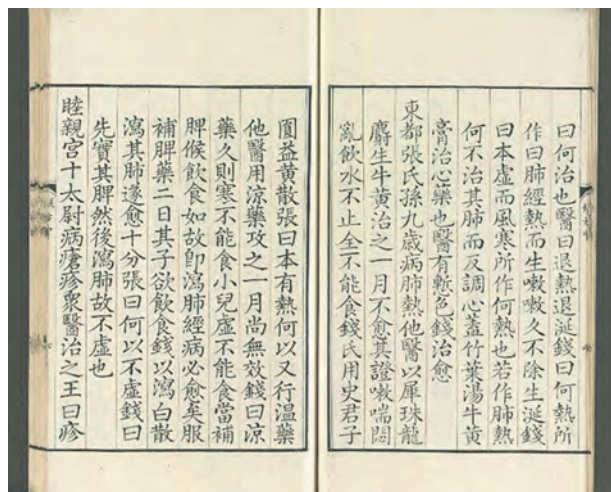 曰何治也醫曰退熱退涎錢曰何熱所
作曰肺經熱而生嗽嗽久不除生涎錢
曰本虛而風寒所作何熱也若作肺熱
何不治其肺而反調心蓋竹葉湯牛黄
膏治心藥也醫有慙色錢治愈
東都張氏孫九歲病肺熱他醫以犀珠龍
麝生牛黄治之一月不愈其證嗽喘悶
亂飲水不止全不能食錢氏用史君子
圎益黄散張曰本有熱何以又行温藥
他醫用涼藥攻之一月尚無效錢曰涼
藥久則寒不能食小兒虛不能食當補
脾候飲食如故卽瀉肺經病必愈矣服
補脾藥二日其子欲飲食錢以瀉白散
瀉其肺遂愈十分張曰何以不虛錢曰
先實其脾然後瀉肺故不虛也
睦親宫十太尉病瘡疹衆醫治之王曰疹